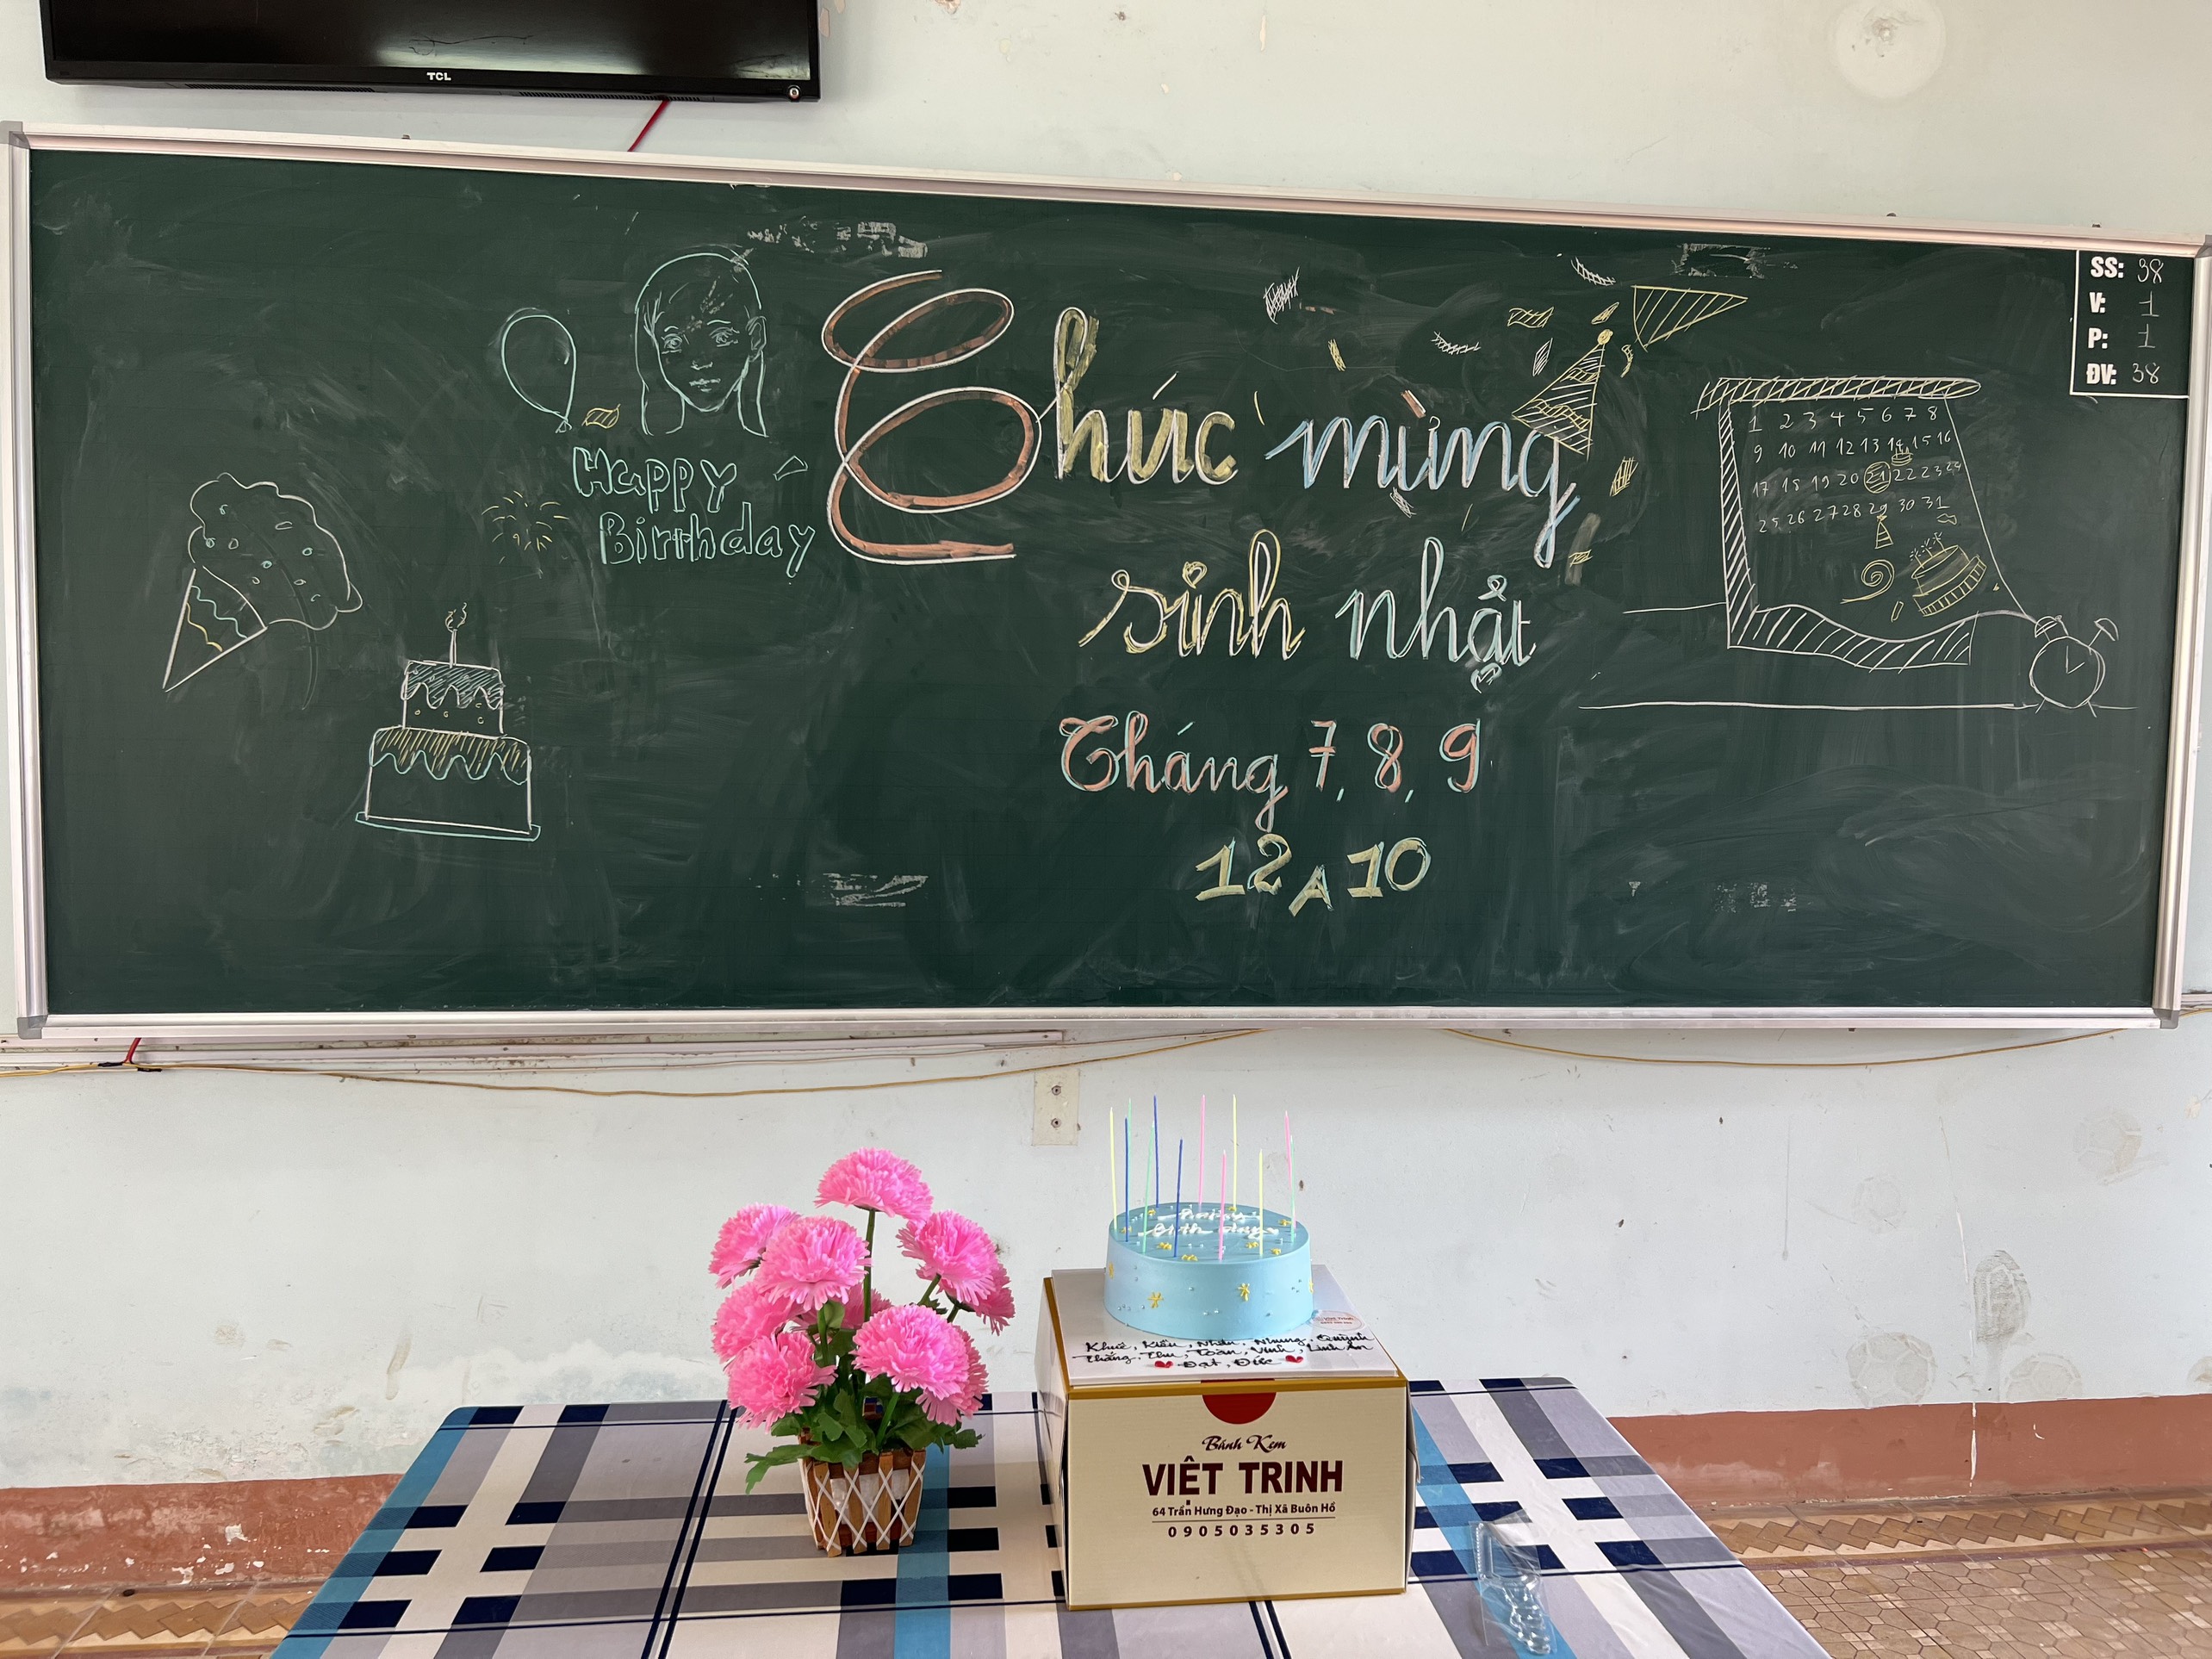 TCL
SS: 38
V: 1
P: 1
ĐV: 38
Happy
Birthday
Chúc mừng
sinh nhật
Tháng 7, 8, 9
12A10
1 2 3 4 5 6 7 8
9 10 11 12 13 14 15 16
17 18 19 20 21 22 23 24
25 26 27 28 29 30 31
Happy
Birth day
Việt Trinh
Khuê, Kiều, Nhân, Nhung, Quỳnh
Thắng, Thu, Toàn, Vinh, Linh An
Đạt, Đức
Bánh Kem
VIỆT TRINH
64 Trần Hưng Đạo - Thị Xã Buôn Hồ
0905035305